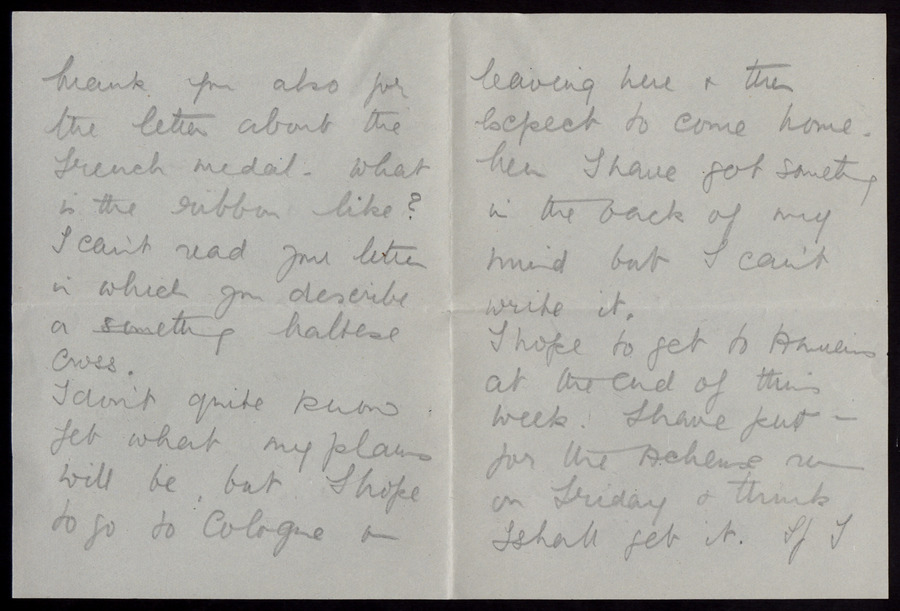 Thank you also for
the letter about the
French medal - what
is the ribbon like?
I can't read your letter
in which you describe
a someth̶i̶n̶g̶ Maltese
cross.
I don't quite know
yet what my plans
will be, but I hope
to go to Cologne on
leaving here & then
expect to come home.
I have got something
in the back of my
mind but I can't
write it.
I hope to get to Amiens
at the end of this
week. I have put -
for the run
on Friday & think
I shall get it. If I